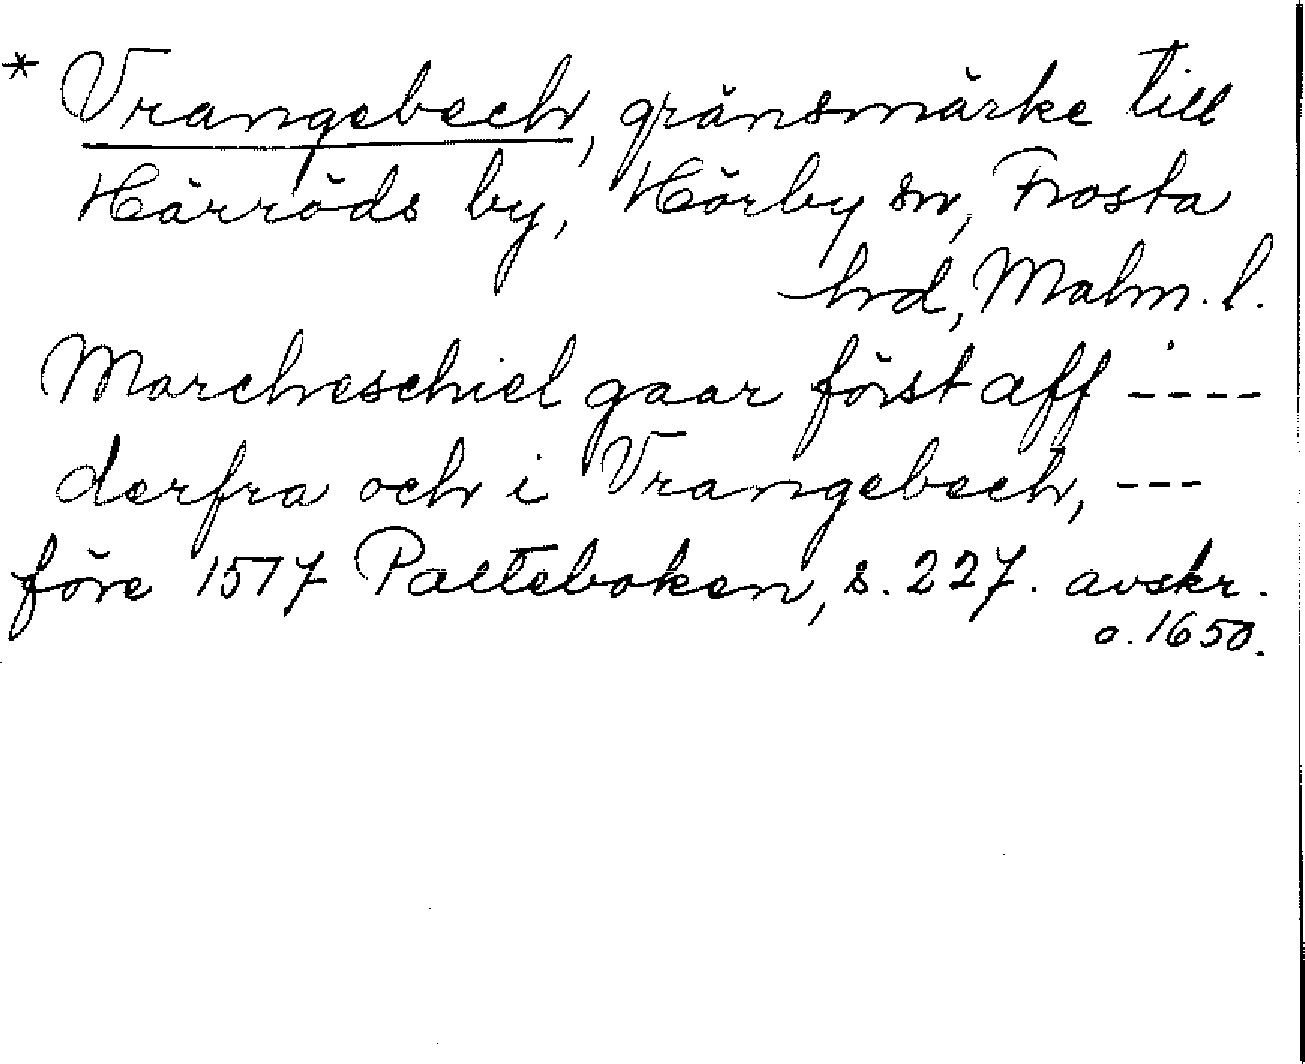 * Vrangebech, gränsmärke till
Härröds by, Hörby sn, Frosta
hd, Malm. l.
Marcheschiel gaar först aff ----
derfra och i Vrangebech, ---
före 1517 Palteboken, s. 227. avskr.
o. 1650.